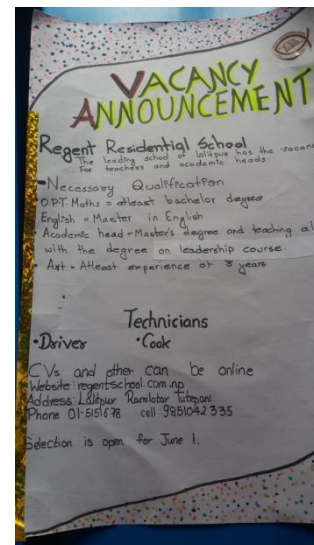 VACANCY
ANNOUNCEMENT
Regent Residential School
The leading school of lalitpur has the vacan
for teachers and academic heads.
Necessary Qualification
OPT Maths = atleast bachelor degree
English = Master in English
Academic head = Master's degree and teaching al
with the degree on leadership course.
Art = Atleast experience of years
Technicians
• Driver • Cook
CVs and other can be online
Website: regentschool.com.np
Address: Lalitpur Ramilotar Tutepani
Phone 01-5151678 cell: 9851042335
Selection is open for June 1.